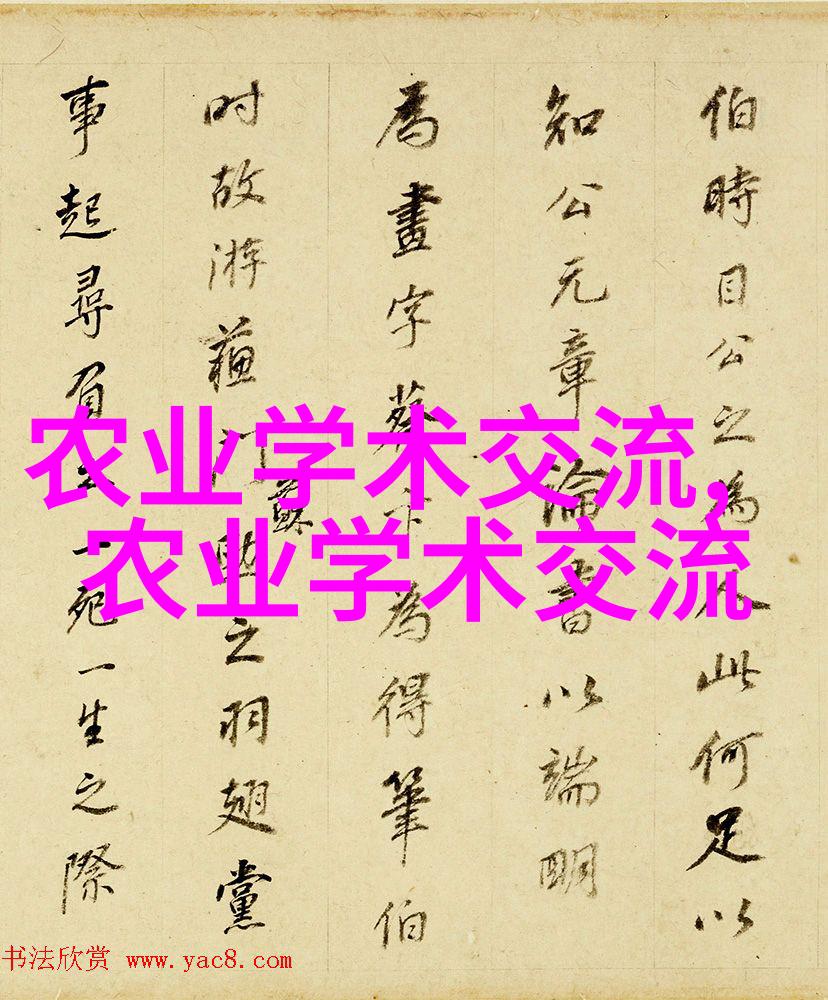 伯時目公之為人此何足以
知公元章論書以端明
為畫字蔡卞為得筆伯
时故游蘓門之羽翅黨
蘇
事起尋一死一生之際
农业学术交流,
农业学术交流
书法欣赏 www.yac8.com